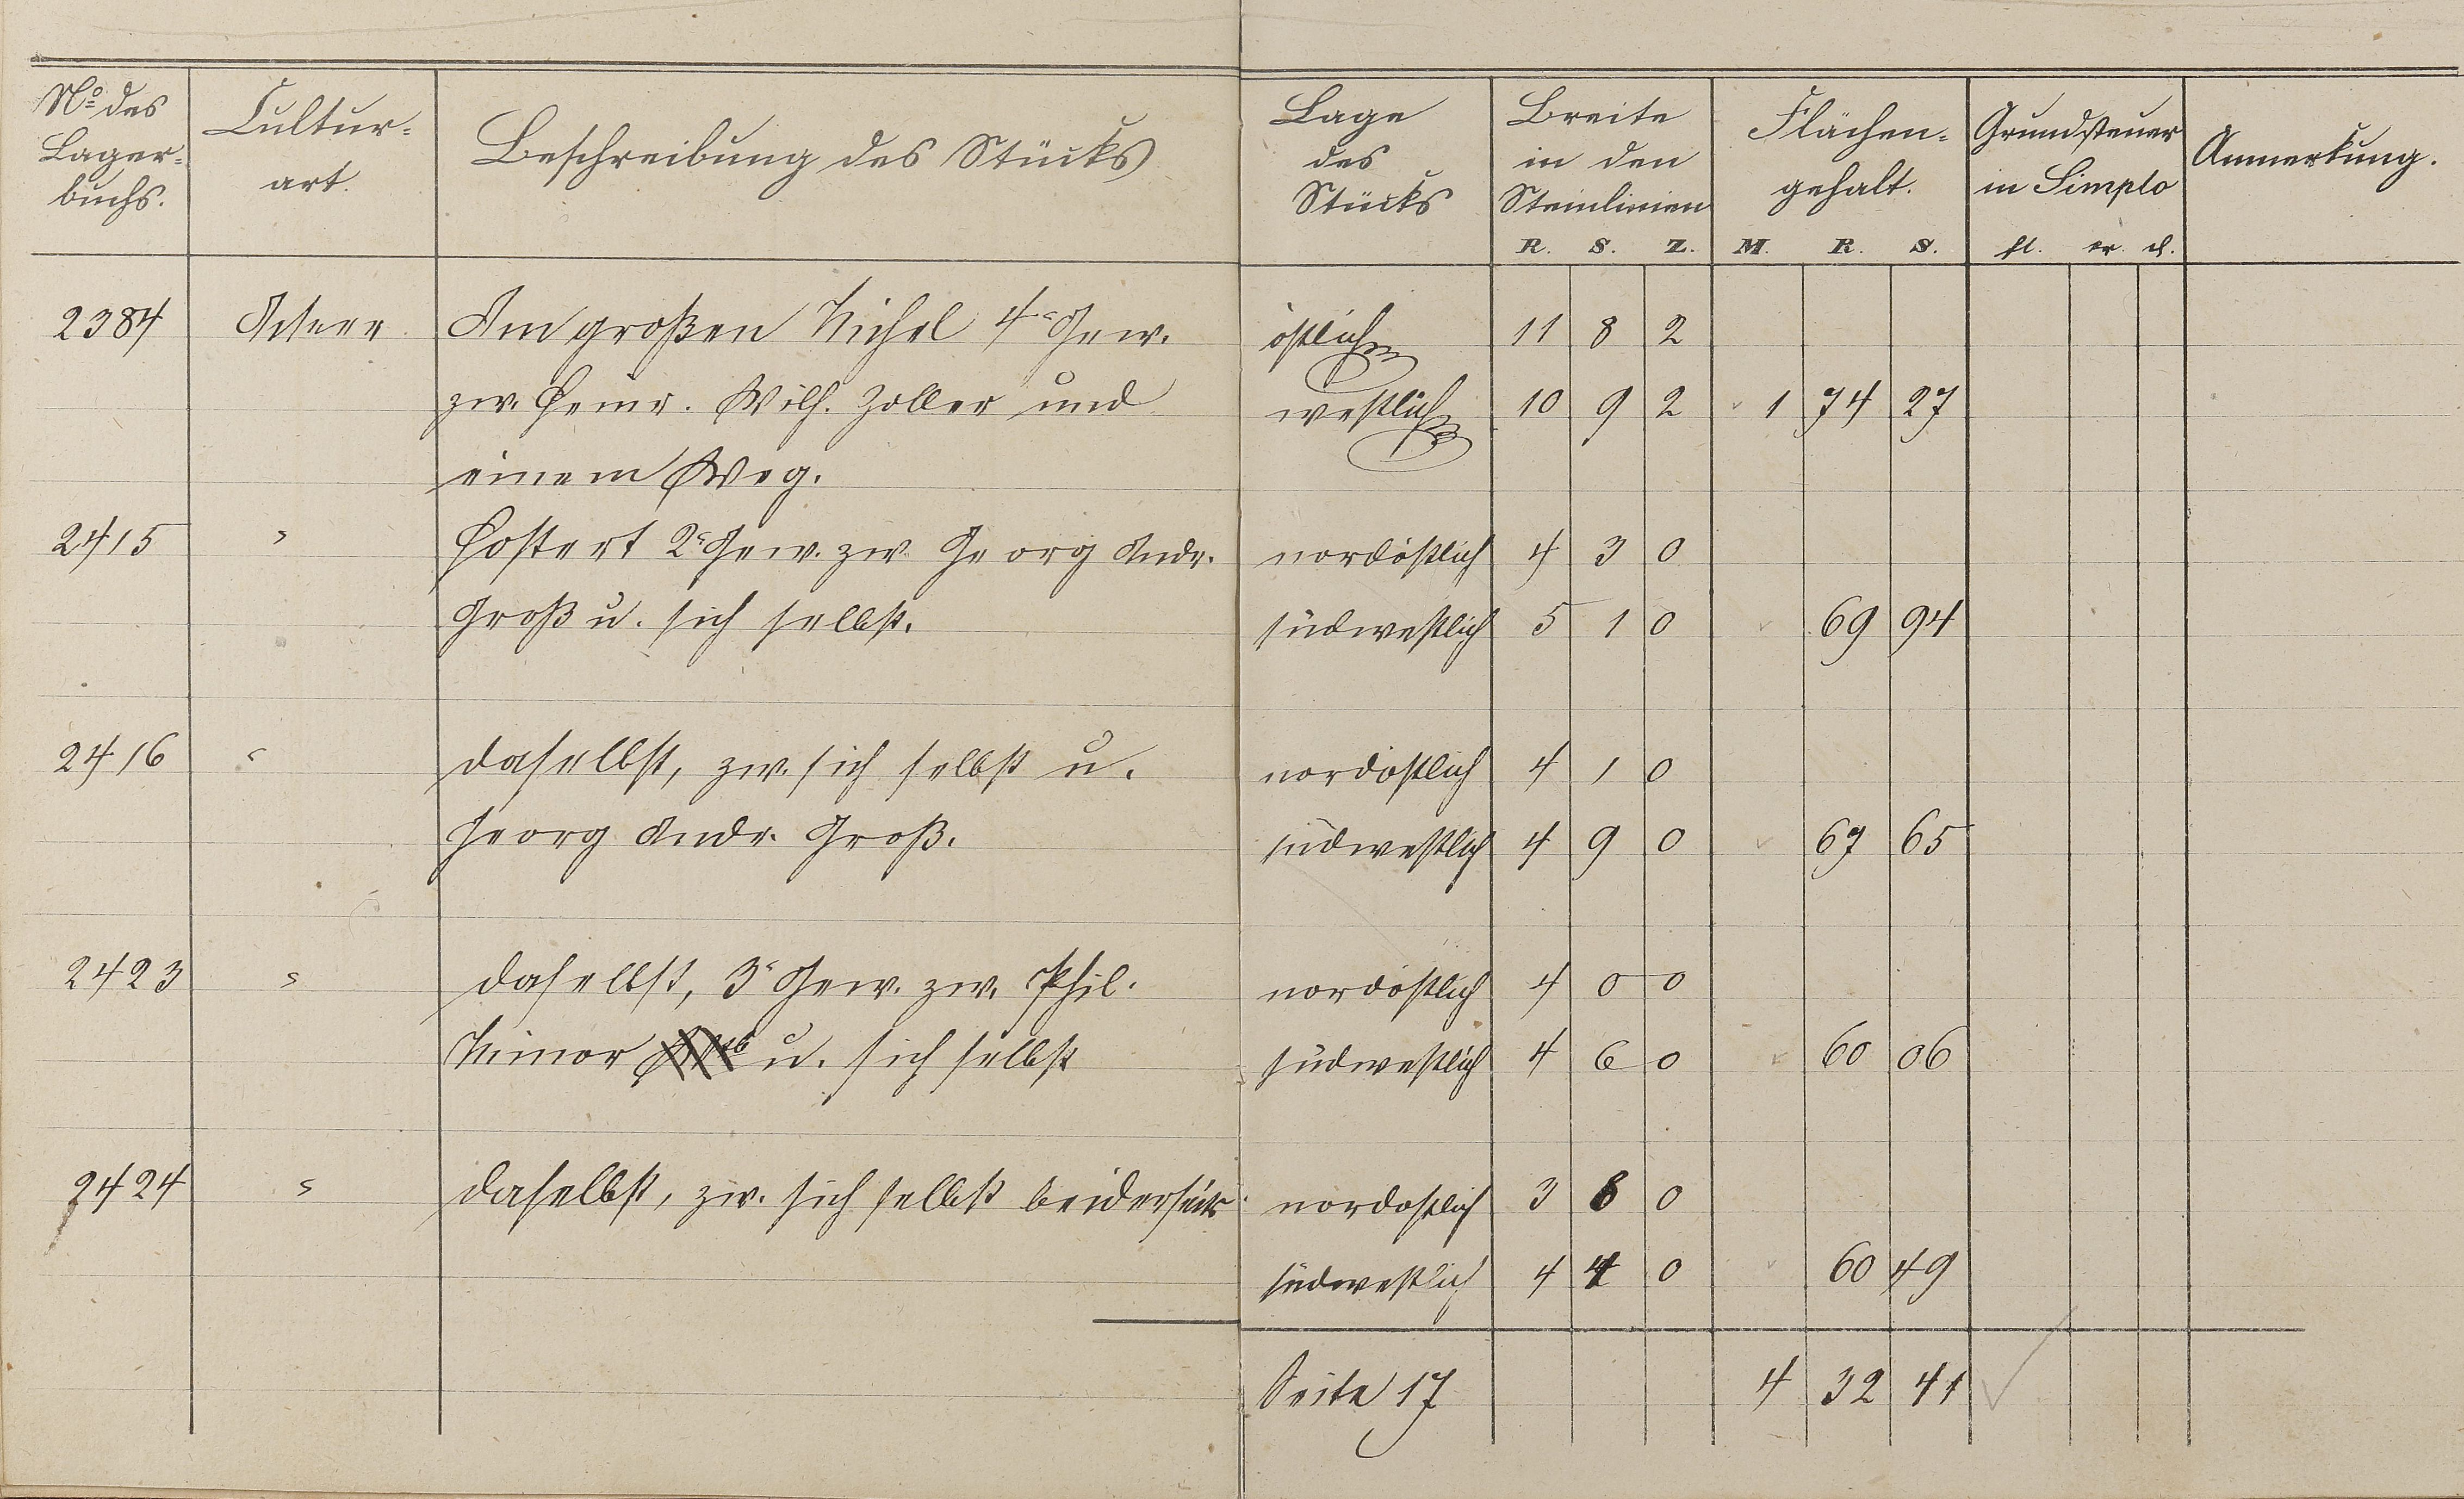 No des Lagerbuchs.
Culturart.
Beschreibung des Stücks
Lage des Stücks
Breite in den Steinlinien
R. S. Z.
Flächengehalt.
M. R. S.
Grundsteuer in Simplo
fl. xr. d.
Anmerkung.
2384 Acker Am großen Michel 4e Gew. östlich 11 8 2
zw. Heinr. Wilh. Zoller und westlich 10 9 2 1 74 27
einem Weg.
2415 " Hostert 2e Gew. zw. Georg Andr. nordöstlich 4 3 0
Groß u. sich selbst. südwestlich 5 1 0 69 94
2416 " daselbst, zw. sich selbst u. nordöstlich 4 1 0
Georg Andr. Groß. südwestlich 4 9 0 67 65
2423 " daselbst, 3e Gew. zw. Phil. nordöstlich 4 0 0
Minor u. sich selbst südwestlich 4 6 0 60 06
2424 " daselbst, zw. sich selbst beiderseits nordöstlich 3 8 0
südwestlich 4 4 0 60 49
Seite 17 4 32 41